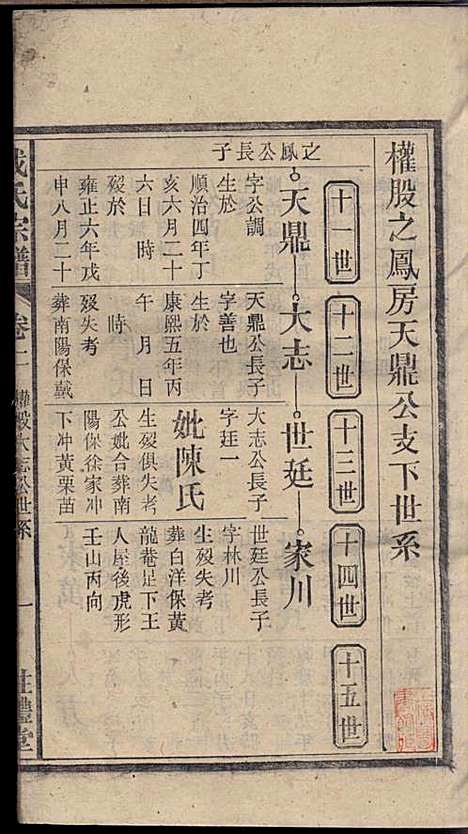 權股之鳳房天鼎公支下世系
十一世
十二世
十三世
十四世
十五世
之鳳公長子
天鼎
大志
世廷
家川
字公調
生於
順治四年丁
亥六月二十
六日 時
歿於
雍正六年戊
申八月二十
天鼎公長子
字善也
生於
康熙五年丙
午 月 日
時
歿失考
葬南陽保戴
大志公長子
字廷一
妣陳氏
生歿俱失考
公妣合葬南
陽保徐家冲
下冲黃栗苗
世廷公長子
字林川
生歿失考
葬白洋保黃
龍菴是下王
人屋後虎形
壬山丙向
氏宗譜
卷二
權股大志公世系
一
禮堂